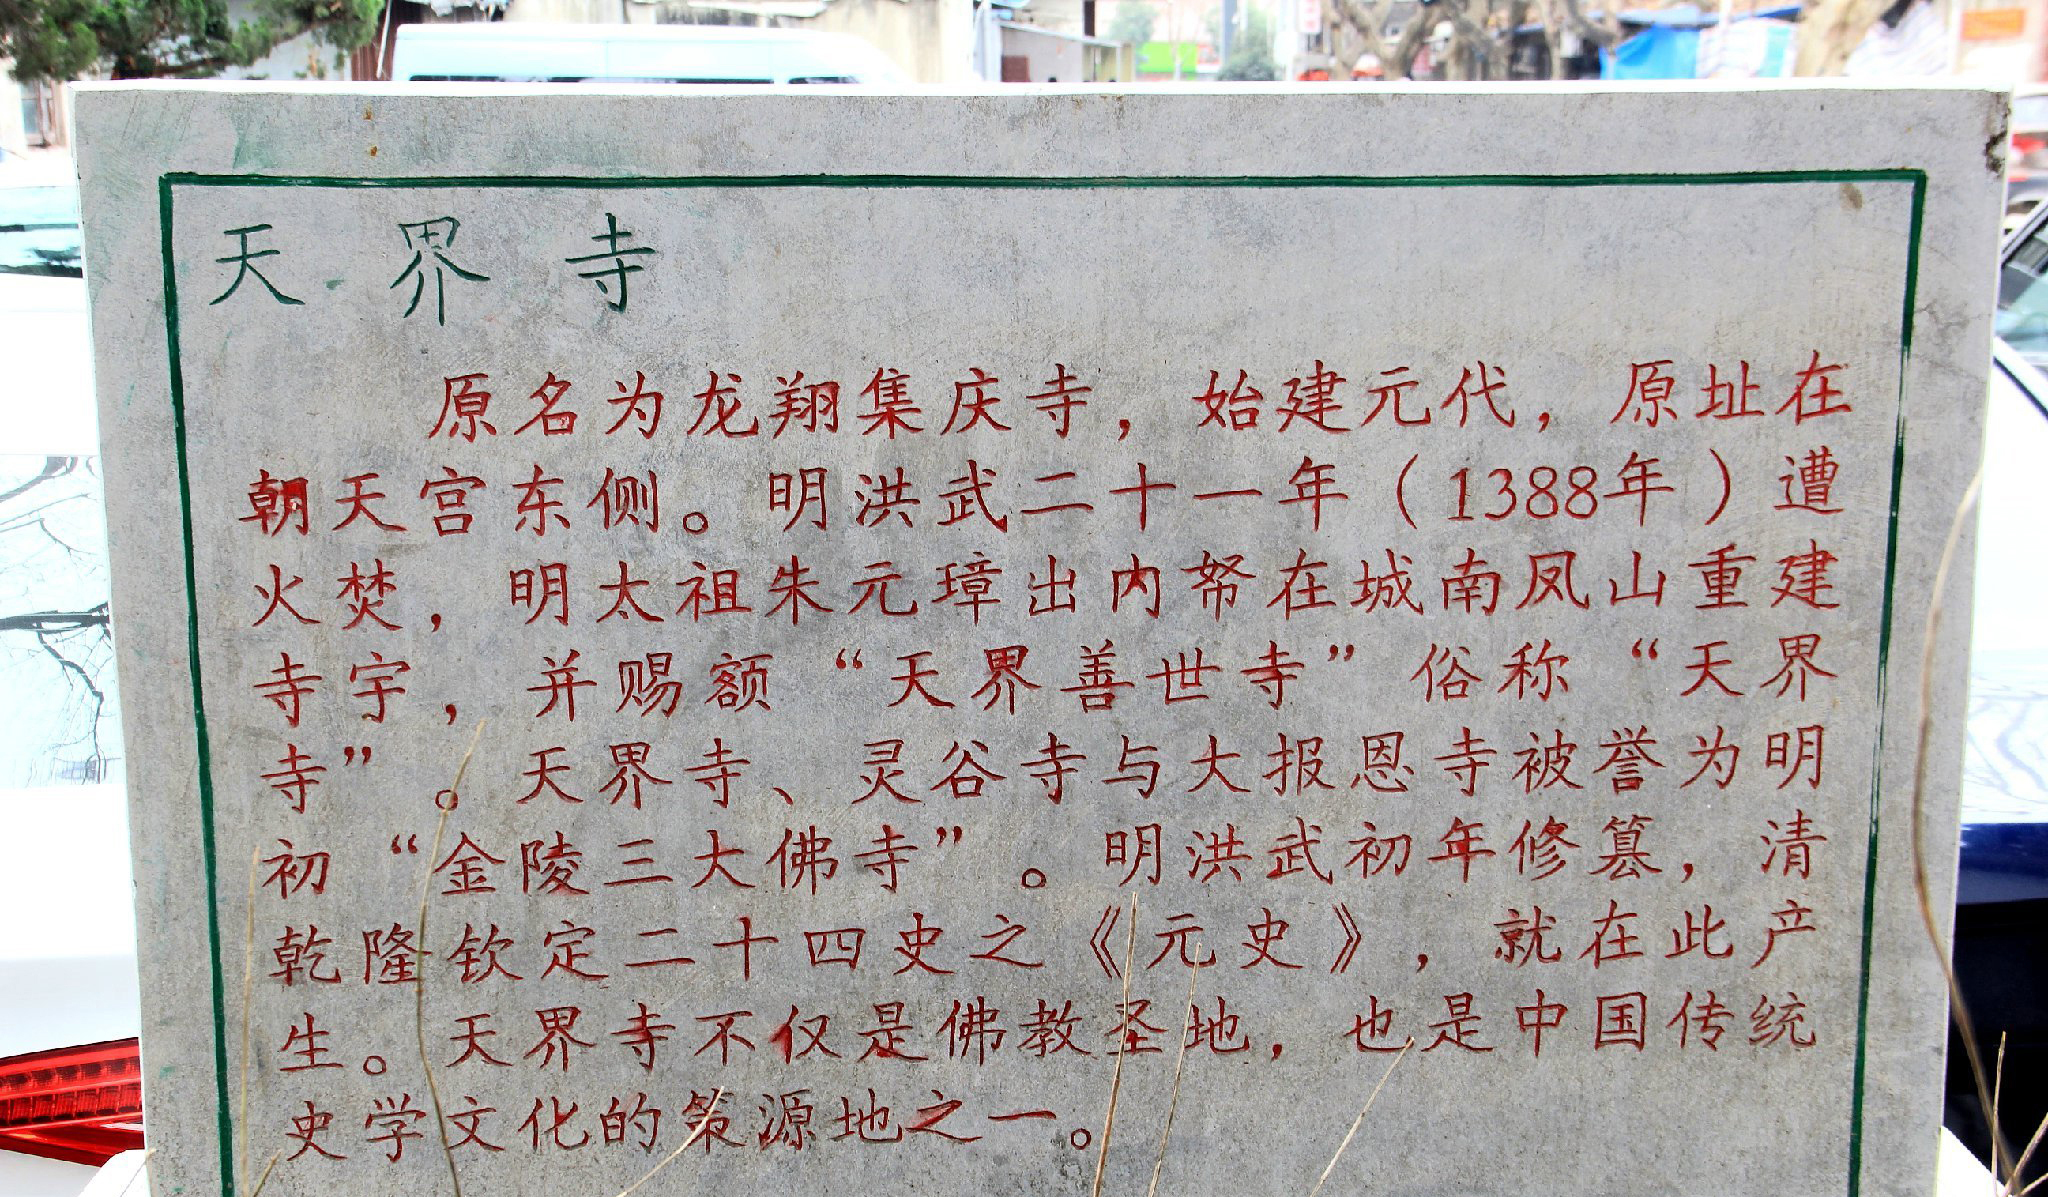 天界寺
原名为龙翔集庆寺，始建元代，原址在
朝天宫东侧。明洪武二十一年（1388年）遭
火焚，明太祖朱元璋出内帑在城南凤山重建
寺宇，并赐额“天界善世寺”俗称“天界
寺”。天界寺、灵谷寺与大报恩寺被誉为明
初“金陵三大佛寺”。明洪武初年修篡，清
乾隆钦定二十四史之《元史》，就在此产
生。天界寺不仅是佛教圣地，也是中国传统
史学文化的策源地之一。